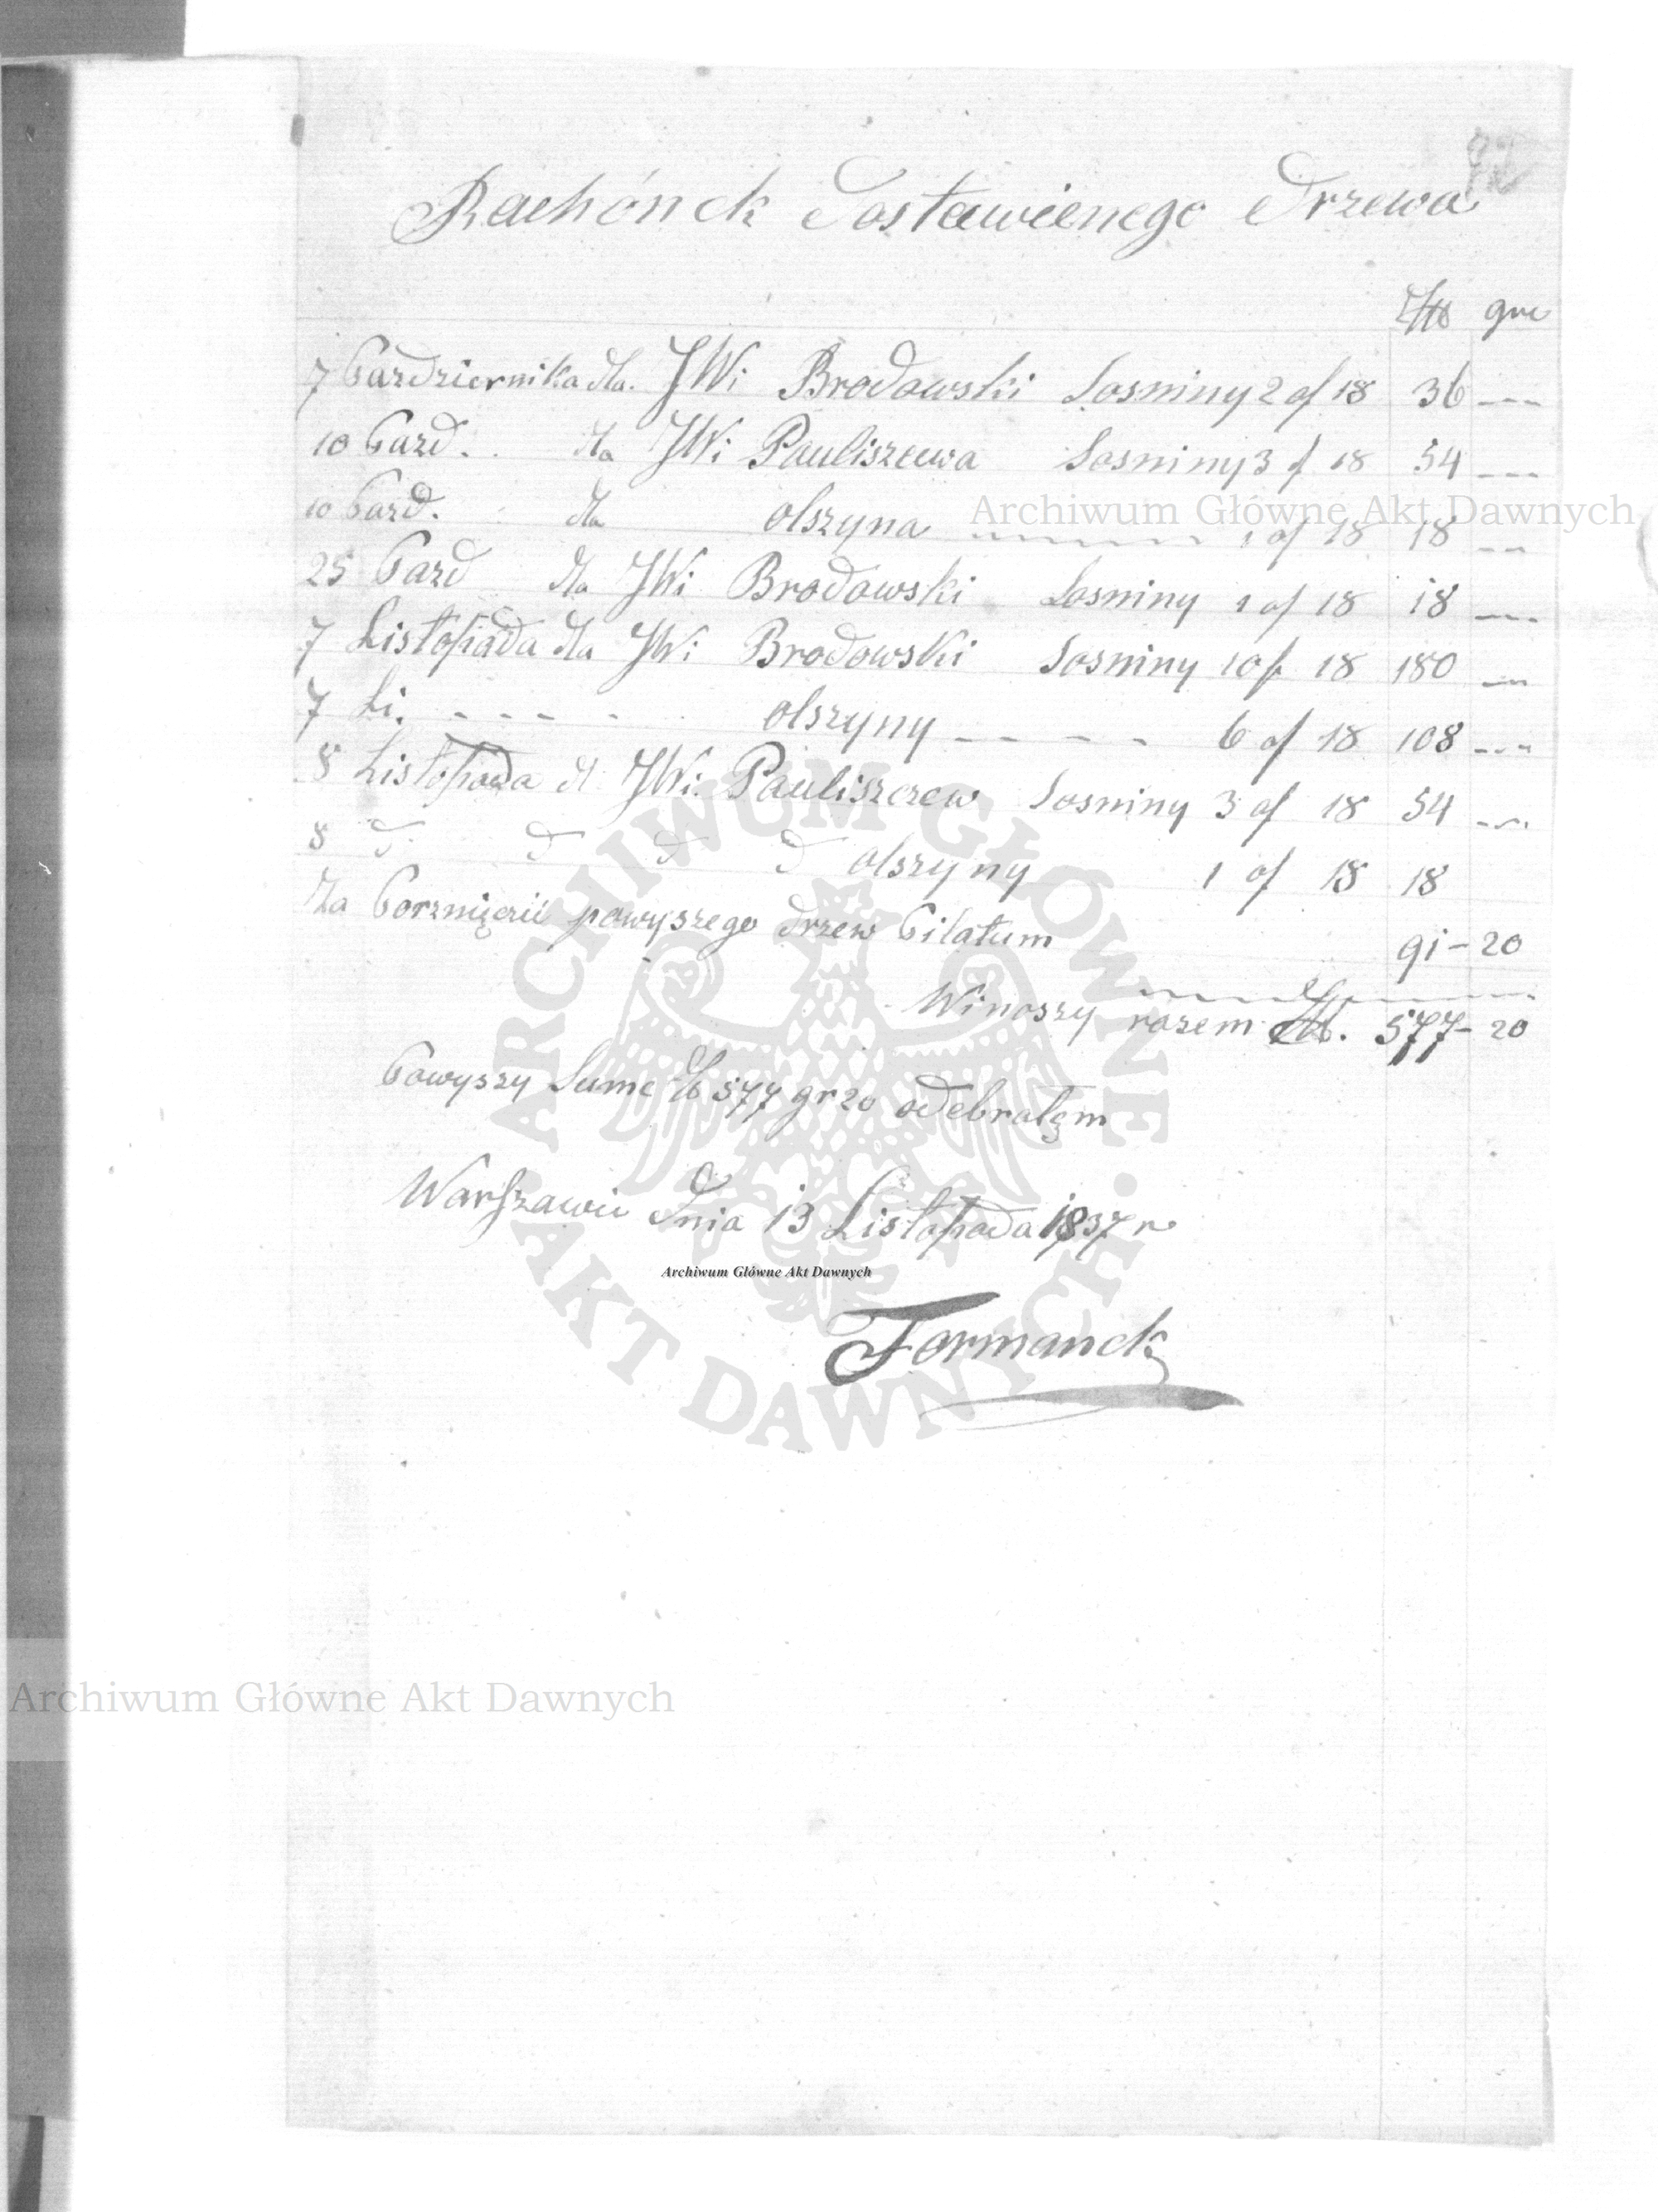 Rachónek Dostawienego Drzewa
Złt gru
7 Pazdziernika dla JWi Brodowski Sosniny 2 of 18 36 ---
10 Pazd. dla JWi Pauliszewa Sosniny 3 f 18 54 ---
10 Pazd. dla olszyna 1 of 18 18 ---
25 Pazd dla JWi Brodowski Sosniny 1 of 18 18 ---
7 Listopada dla JWi Brodowski Sosniny 10 f 18 180 ---
7 Li. - - - - olszyny - - - - 6 of 18 108 ---
8 Listopada dl JWi Pauliszczew Sosniny 3 of 18 54 ---
8 d d d d olszyny 1 of 18 18
Za Porznięcii powyszego drzew Pilatum 91 - 20
Winoszy razem Złt. 577 - 20
Powyszy Sume Zł 577 gr 20 odebrałęm
Warszawii Dnia 13 Listopada 1837 r
Formanek
Archiwum Główne Akt Dawnych
ARCHIWUM GŁÓWNE AKT DAWNYCH
Archiwum Główne Akt Dawnych
Archiwum Główne Akt Dawnych